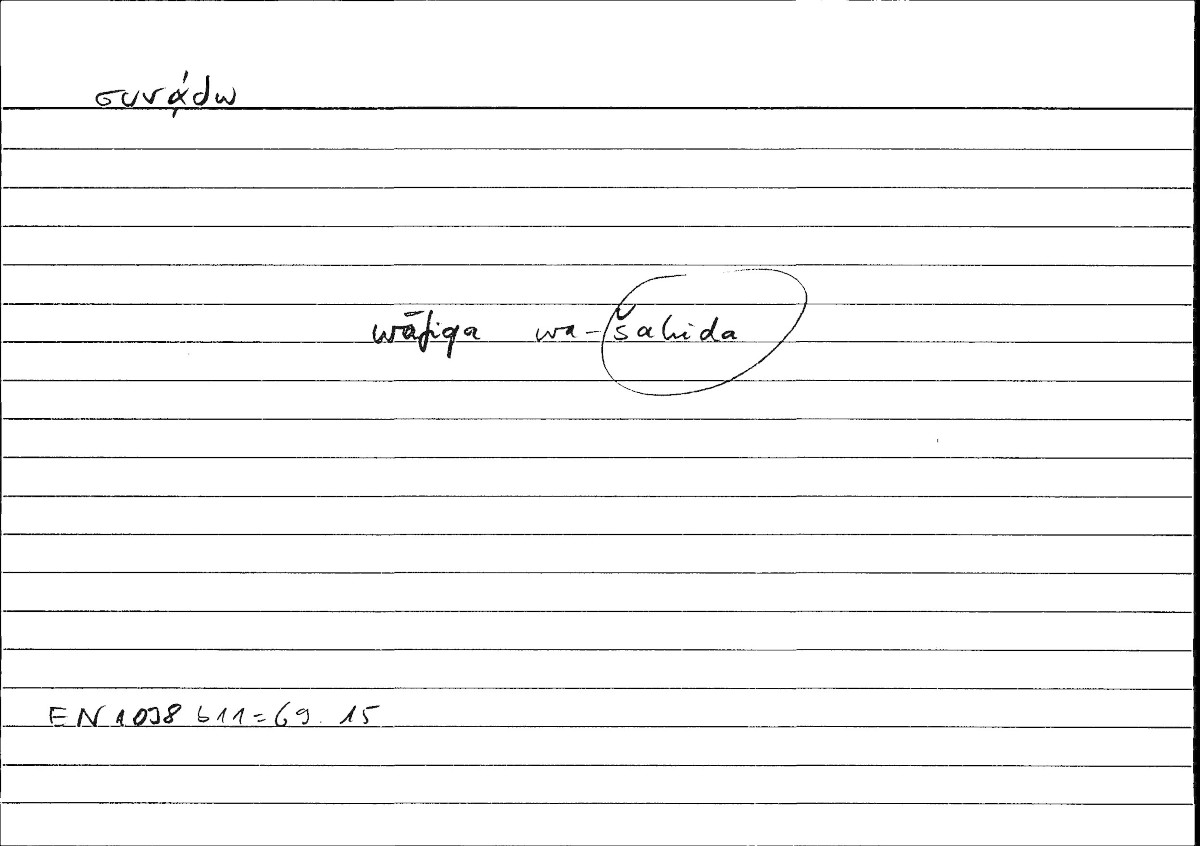 συνᾴδω
wāfiqa wa-šahida
EN 1098 b11=69. 15